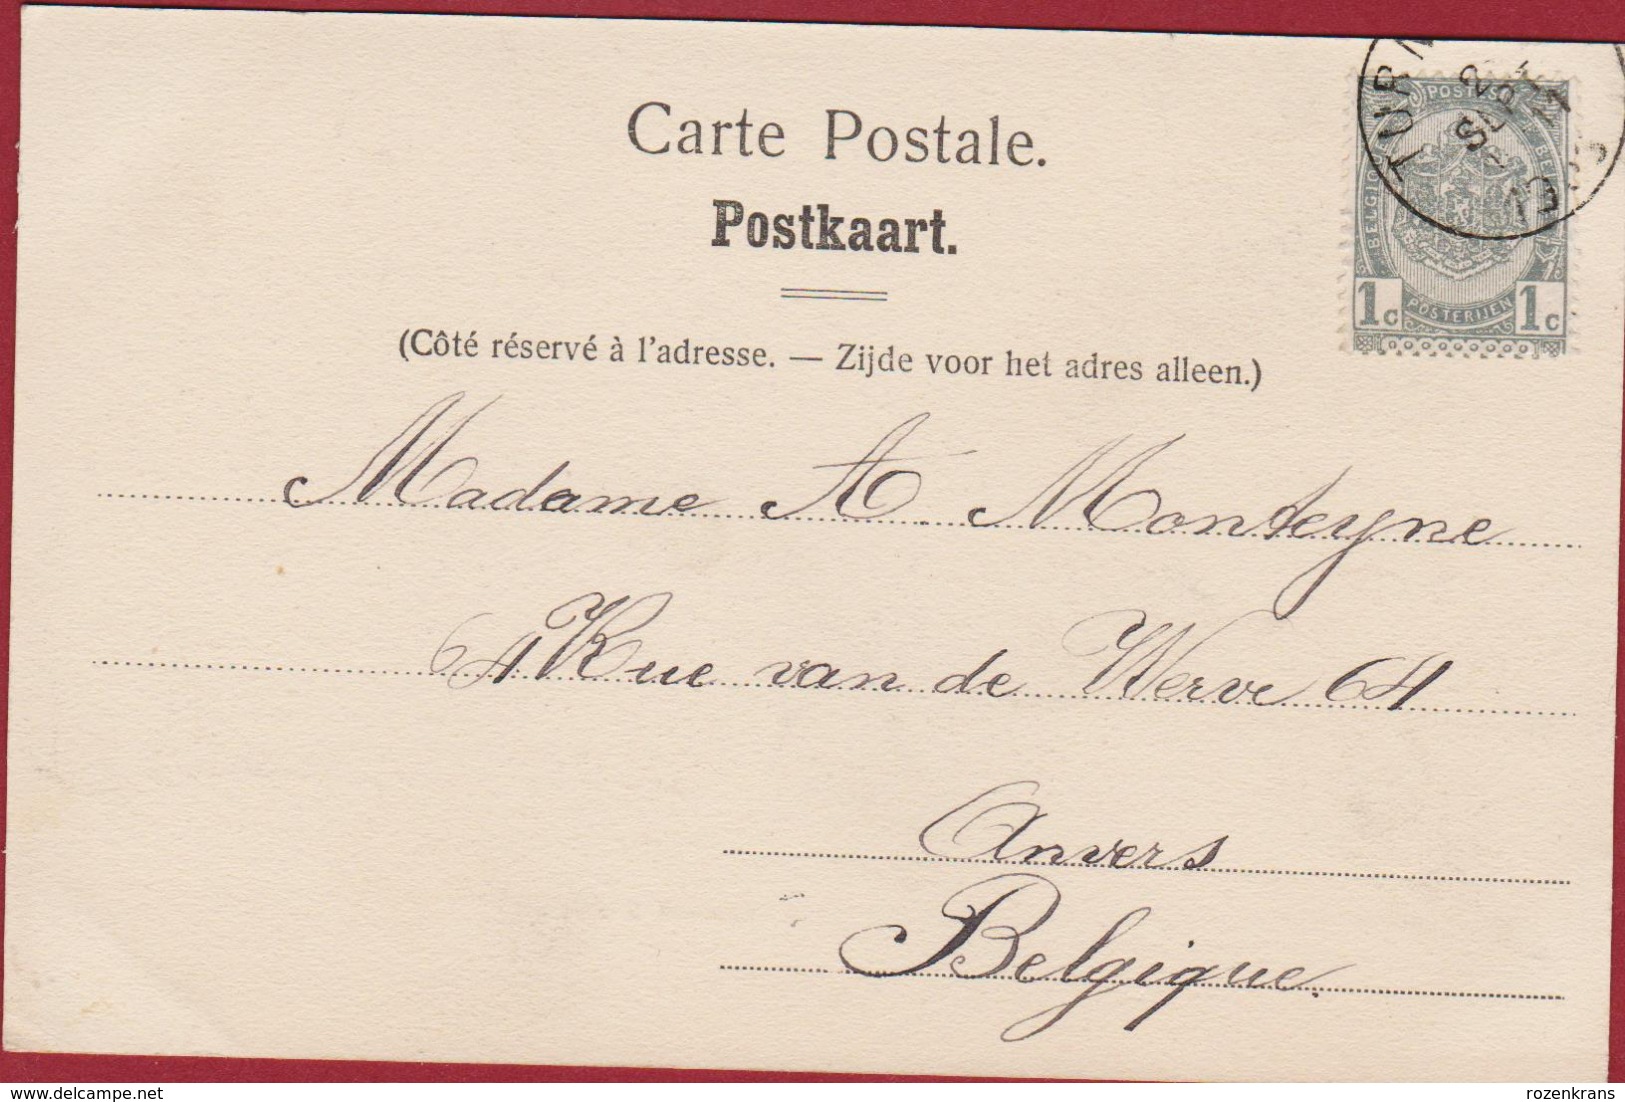 Carte Postale.
Postkaart.
(Côté réservé à l'adresse. — Zijde voor het adres alleen.)
POSTES
BELGIQUE
BELGIË
1c POSTERIJEN 1c
TURN
SEPT
Madame A. Monteyne
64 Rue van de Werve 64
Anvers
Belgique.
delcampe.net
rozenkrans